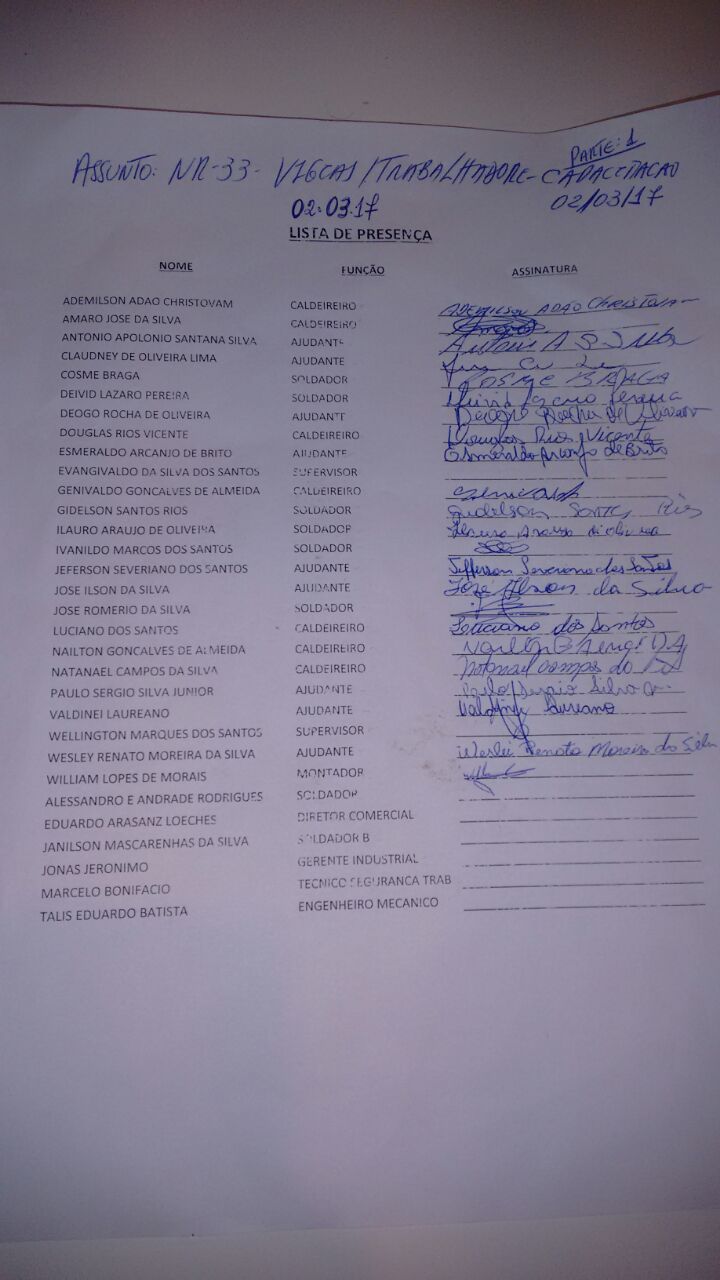 PARTE: 1
ASSUNTO: NR-33- VIGIAS/TRABALHADORE- CAPACITACAO
02.03.17 02/03/17
LISTA DE PRESENÇA
NOME FUNÇÃO ASSINATURA
ADEMILSON ADAO CHRISTOVAM CALDEIREIRO ADEMILSON ADÃO CHRISTOVA-
AMARO JOSE DA SILVA CALDEIREIRO
ANTONIO APOLONIO SANTANA SILVA AJUDANTE Antonio A S Silva
CLAUDNEY DE OLIVEIRA LIMA AJUDANTE
COSME BRAGA SOLDADOR COSME BRAGA
DEIVID LAZARO PEREIRA SOLDADOR Deivid Lazaro Pereira
DEOGO ROCHA DE OLIVEIRA AJUDANTE Deogo Rocha de Oliveira
DOUGLAS RIOS VICENTE CALDEIREIRO Douglas Rios Vicente
ESMERALDO ARCANJO DE BRITO AJUDANTE Esmeraldo Arcanjo de Brito
EVANGIVALDO DA SILVA DOS SANTOS SUPERVISOR
GENIVALDO GONCALVES DE ALMEIDA CALDEIREIRO
GIDELSON SANTOS RIOS SOLDADOR Gidelson Santos Rios
ILAURO ARAUJO DE OLIVEIRA SOLDADOR Ilauro Araujo de Oliveira
IVANILDO MARCOS DOS SANTOS SOLDADOR
JEFERSON SEVERIANO DOS SANTOS AJUDANTE Jefferson Severiano dos Santos
JOSE ILSON DA SILVA AJUDANTE José Ilson da Silva
JOSE ROMERIO DA SILVA SOLDADOR
LUCIANO DOS SANTOS CALDEIREIRO Luciano dos Santos
NAILTON GONCALVES DE ALMEIDA CALDEIREIRO
NATANAEL CAMPOS DA SILVA CALDEIREIRO Natanael Campos da
PAULO SERGIO SILVA JUNIOR AJUDANTE Paulo Sergio Silva Jr.
VALDINEI LAUREANO AJUDANTE Valdinei Laureano
WELLINGTON MARQUES DOS SANTOS SUPERVISOR
WESLEY RENATO MOREIRA DA SILVA AJUDANTE Weslei Renato Moreira da Silva
WILLIAM LOPES DE MORAIS MONTADOR
ALESSANDRO E ANDRADE RODRIGUES SOLDADOR
EDUARDO ARASANZ LOECHES DIRETOR COMERCIAL
JANILSON MASCARENHAS DA SILVA SOLDADOR B
JONAS JERONIMO GERENTE INDUSTRIAL
MARCELO BONIFACIO TECNICO SEGURANCA TRAB
TALIS EDUARDO BATISTA ENGENHEIRO MECANICO